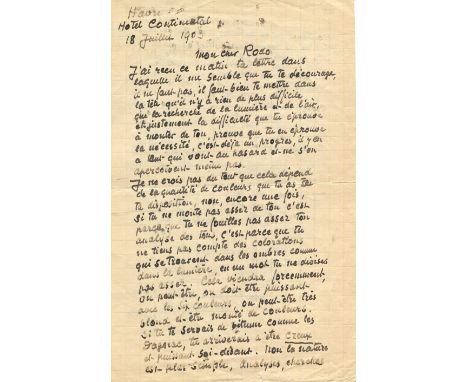 Havre
Hotel Continental
18 Juillet 1903
Mon cher Rodo
J'ai reçu ce matin ta lettre dans
laquelle il me semble que tu te décourage,
il ne faut pas, il faut bien te mettre dans
la tête qu'il n'y a rien de plus difficile
que la recherche de la lumière et de l'air,
et justement la difficulté que tu éprouve
à monter de ton, prouve que tu en éprouve
la nécessité, c'est déjà un progrès, il y en
a tant qui vont au hasard et ne s'en
aperçoivent même pas.
Je ne crois pas du tout que cela dépend
de la quantité de couleurs que tu as à
ta disposition, non, encore une fois,
si tu ne monte pas assez de ton c'est
parce que tu ne fouilles pas assez ton
analyse des tons, c'est parce que tu
ne tiens pas compte des colorations
qui se trouvent dans les ombres comme
dans la lumière, en un mot tu ne divises
pas assez. Cela viendra forcement,
on peut être, on doit être puissant
avec les six couleurs, on peut être très
blond et être monté de couleurs.
Si tu te servais de bitume comme les
tu arriverais à être creux
et puissant soi-disant. Non la nature
est plus simple, analyses, cherches